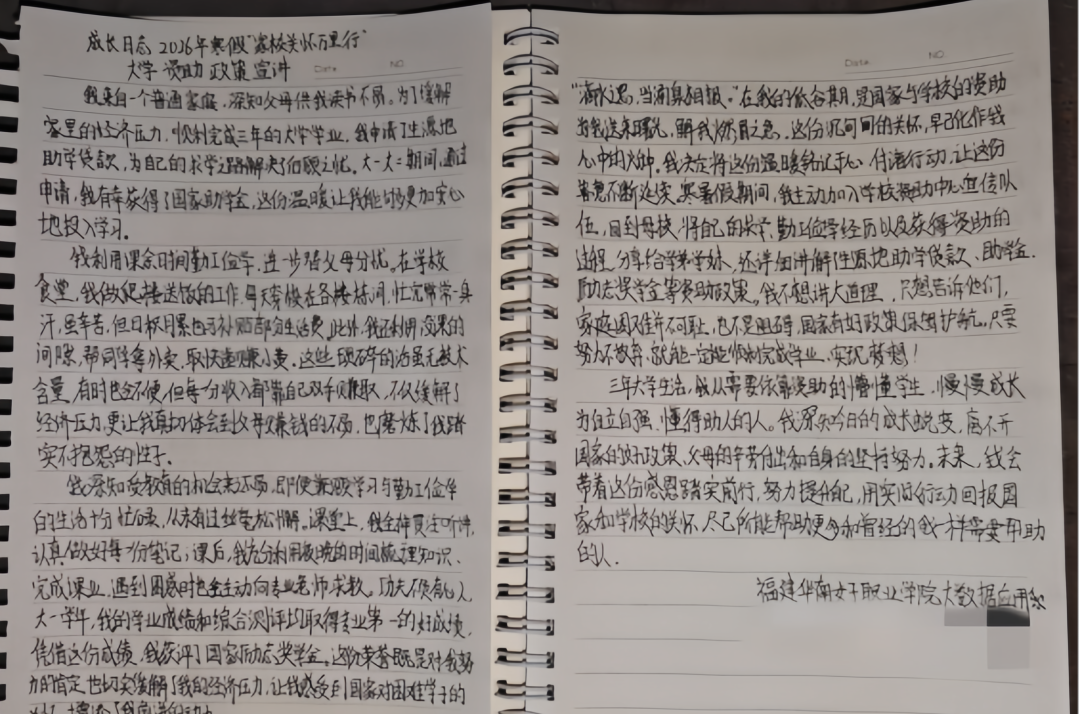 成长日志 2026年寒假"寒校关怀万里行"
大学 资助 政策宣讲
Date NO
我来自一个普通家庭,深知父母供我读书不易。为了缓解
家里的经济压力,顺利完成三年的大学学业,我申请了生源地
助学贷款,为自己的求学之路解决了后顾之忧。大一大二期间,通过
申请,我有幸获得了国家助学金,这份温暖让我能够更加安心
地投入学习。
我利用课余时间勤工俭学,进一步替父母分忧。在学校
食堂,我做爬楼送饭的工作,每天穿梭在各楼栋间,忙完常常一身
汗,虽辛苦,但日积月累也可补贴部分生活费。此外,我还利用没课的
间隙,帮同学拿外卖、取快递赚小费。这些琐碎的活虽无技术
含量,有时也会不便,但每一分收入都靠自己双手赚取,不仅缓解了
经济压力,更让我真切体会到父母赚钱的不易,也磨炼了我踏
实不抱怨的性子。
我深知受教育的机会来之不易,即使兼顾学习与勤工俭学
的生活十分忙碌,从未有过丝毫松懈。课堂上,我全神贯注听讲,
认真做好每一份笔记;课后,我充分利用夜晚的时间梳理知识、
完成课业,遇到困惑时也会主动向专业老师求教。功夫不负有心人,
大一学年,我的学业成绩和综合测评均取得专业第一的好成绩,
凭借这份成绩,我获评了国家励志奖学金。这份荣誉既是对我努
力的肯定,也切实缓解了我的经济压力,让我感受到国家对困难学子的
Date NO
"滴水之恩,当涌泉相报。"在我的低谷期,是国家与学校的资助
为我送来曙光,解我燃眉之急,这份沉甸甸的关怀,早已化作我
心中的火种。我决定将这份温暖铭记于心、付诸行动,让这份
善意不断延续。寒暑假期间,我主动加入学校资助中心宣信队
伍,回到母校,将自己的求学、勤工俭学经历以及获得资助的
过程,分享给学弟学妹,还详细讲解生源地助学贷款、助学金、
励志奖学金等资助政策。我不想讲大道理,只想告诉他们,
家庭困难并不可耻,也不是阻碍,国家有好政策保驾护航,只要
努力不放弃,就能一定能顺利完成学业、实现梦想!
三年大学生活,我从需要依靠资助的懵懂学生,慢慢成长
为自立自强、懂得助人的人。我深知今日的成长蜕变,离不开
国家的好政策、父母的辛劳付出和自身的坚持努力。未来,我会
带着这份感恩踏实前行,努力提升自己,用实际行动回报国
家和学校的关怀,尽己所能帮助更多和曾经的我一样需要帮助
的人。
福建华南女子职业学院大数据应用